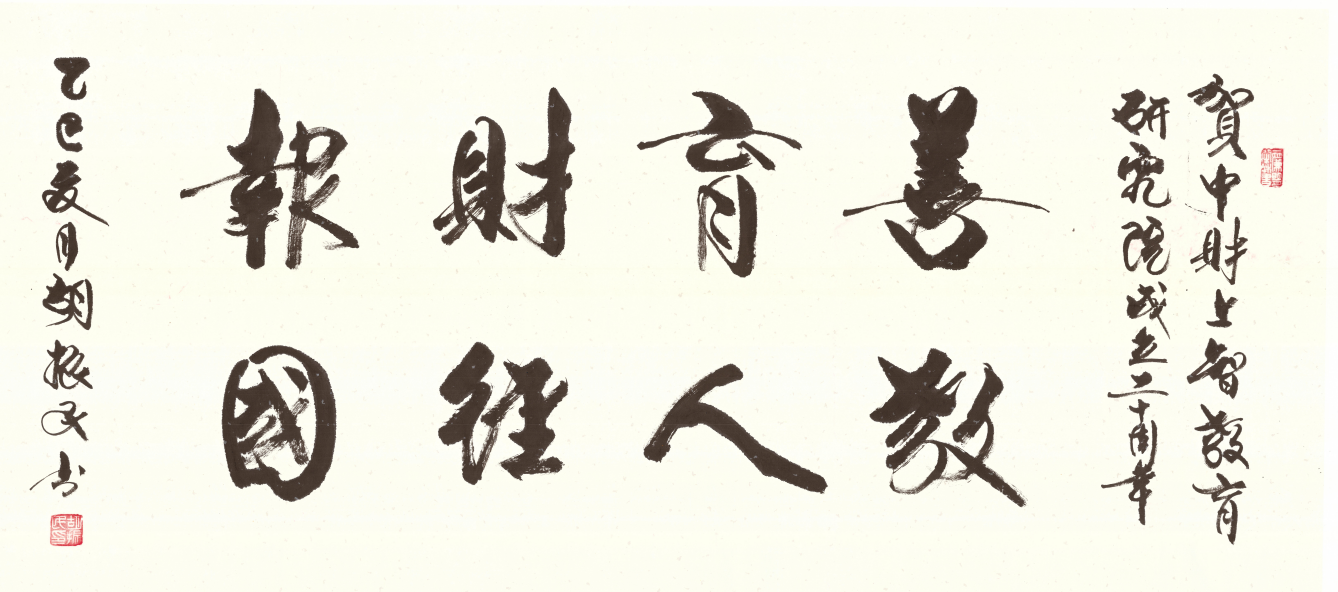 賀中財上智教育
研究院成立二十周年
善教
育人
財經
報國
乙巳夏月胡振民书
胡振民印